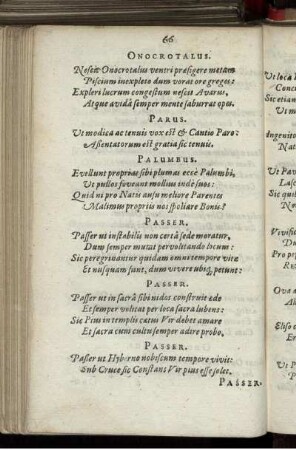 66
ONOCROTALUS.
Nescit Onocrotalus ventri præfigere metam
Piscium inexpleto dum vorat ore greges:
Expleri lucrum congestum nescit Avarus,
Atque avidâ semper mente saburrat opes.
PARUS.
Ut modica ac tenuis vox est & Cantio Paro:
Assentatorum est gratia sic tenuis.
PALUMBUS.
Evellunt proprias sibi plumas ecce Palumbi,
Ut pullos foveant mollius inde suos:
Quid ni pro Natis ausu meliore Parentes
Malimus propriis nos spoliare Bonis?
PASSER.
Passer ut instabilis non certâ sede moratur,
Dum semper mutat pervolitando locum:
Sic peregrinantur quidam omni tempore vitæ
Et nusquam sunt, dum vivere ubiq; petunt:
PASSER.
Passer ut in sacrâ sibi nidos construit æde
Et semper volitat per loca sacra lubens:
Sic Pius in templis cœtus Vir debet amare
Et sacra cum cultu semper adire probo.
PASSER.
Passer ut Hyberno nobiscum tempore vivit:
Sub Cruce sic Constans Vir pius esse solet.
PASSER.
Ut loca
Sic
Ut
Ut Pav
Sic
Pro